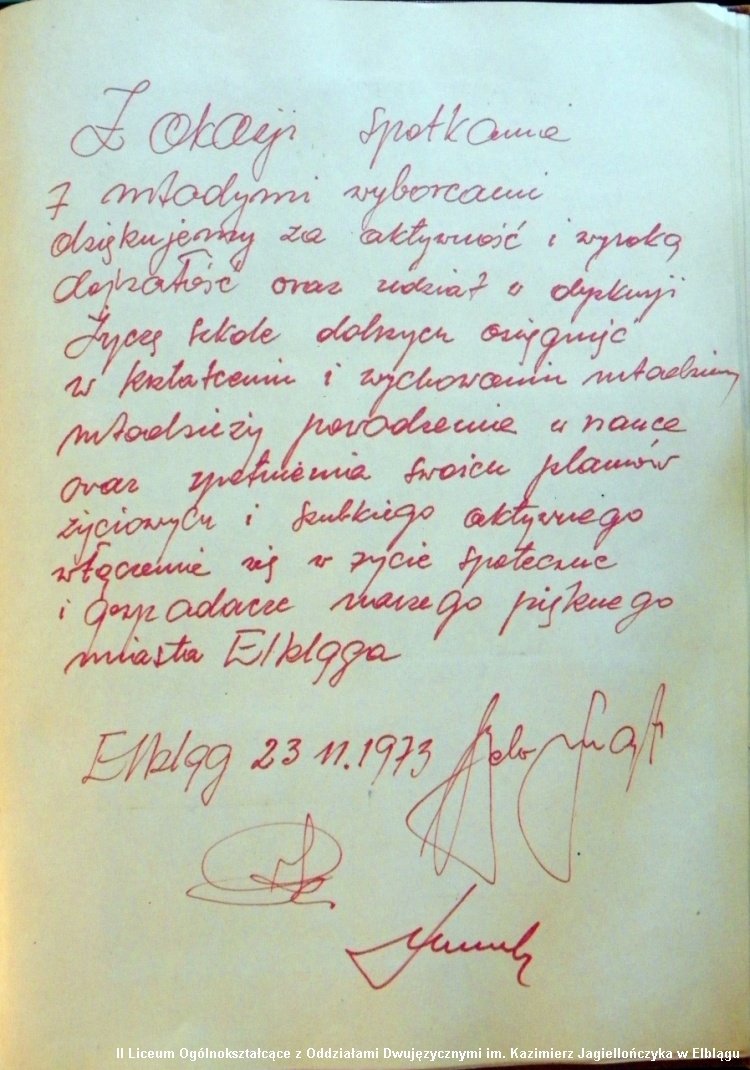 Z okazji spotkania
z młodymi wyborcami
dziękujemy za aktywność i wysoką
dojrzałość oraz udział w dyskusji
Życzę szkole dalszych osięgnięć
w kształceniu i wychowaniu młodzieży
młodzieży powodzenia w nauce
oraz spełnienia swoich planów
życiowych i szybkiego aktywnego
włączenie się w życie społeczne
i gospodarcze naszego pięknego
miasta Elbląga
Elbląg 23 11.1973
II Liceum Ogólnokształcące z Oddziałami Dwujęzycznymi im. Kazimierz Jagiellończyka w Elblągu